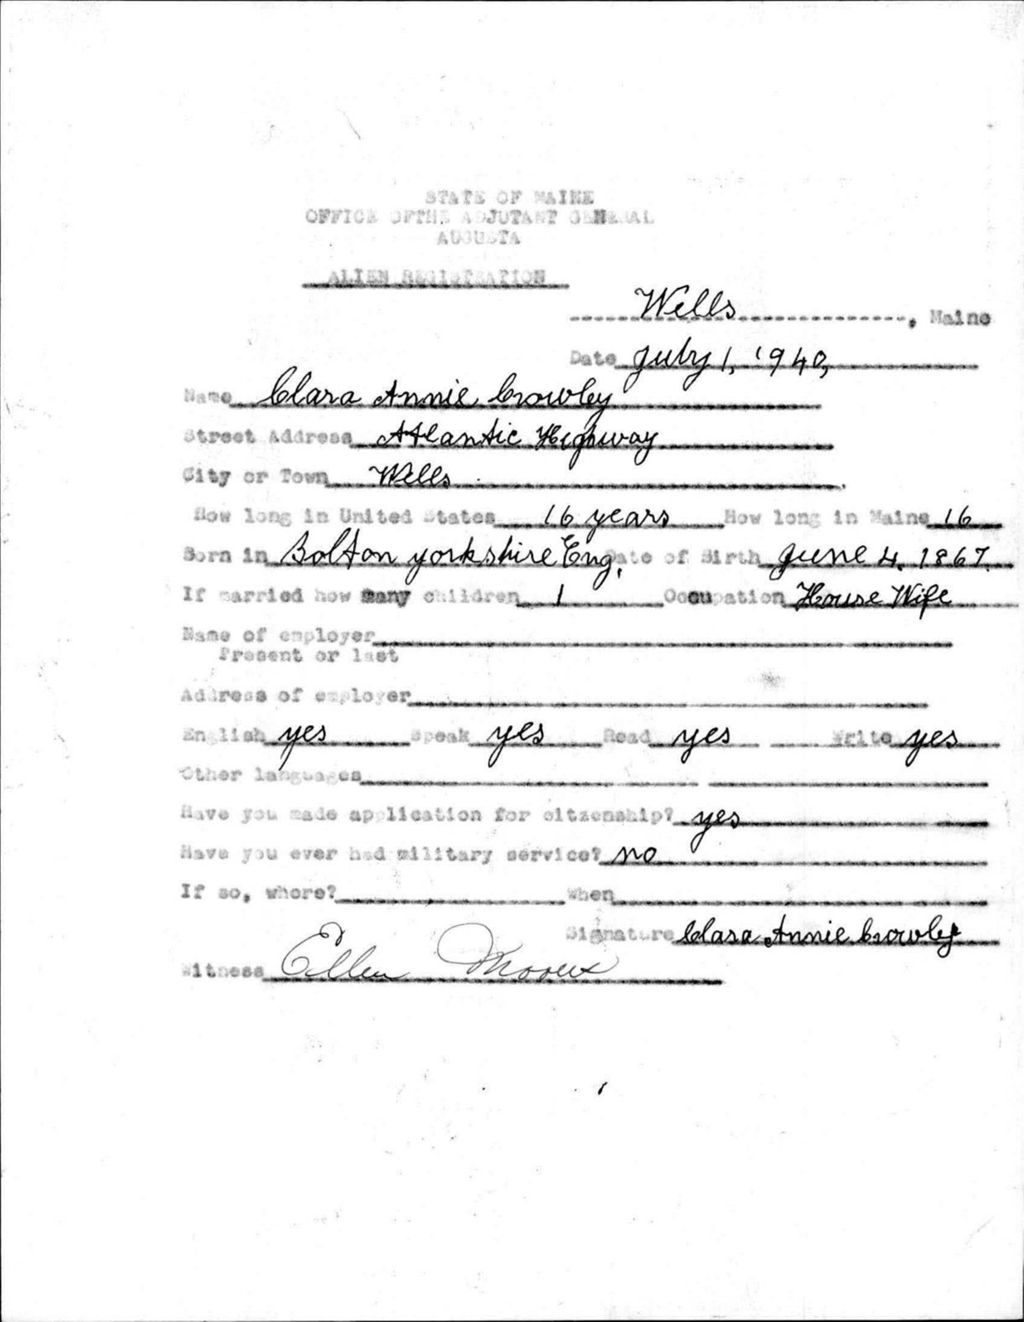 STATE OF MAINE
OFFICE OFTHE ADJUTANT GENERAL
AUGUSTA
ALIEN REGISTRATION
Wells, Maine
Date July 1, 1940,
Name Clara Annie Crowley
Street Address Atlantic Highway
City or Town Wells
How long in United States 16 years How long in Maine 16
Born in Bolton Yorkshire Eng. Date of Birth June 4. 1867.
If married how many children 1 Occupation House Wife
Name of employer
Present or last
Address of employer
English yes Speak yes Read yes Write yes
Other languages
Have you made application for citzenship? yes
Have you ever had military service? no
If so, where? When
Signature Clara Annie Crowley
Witness Ellen